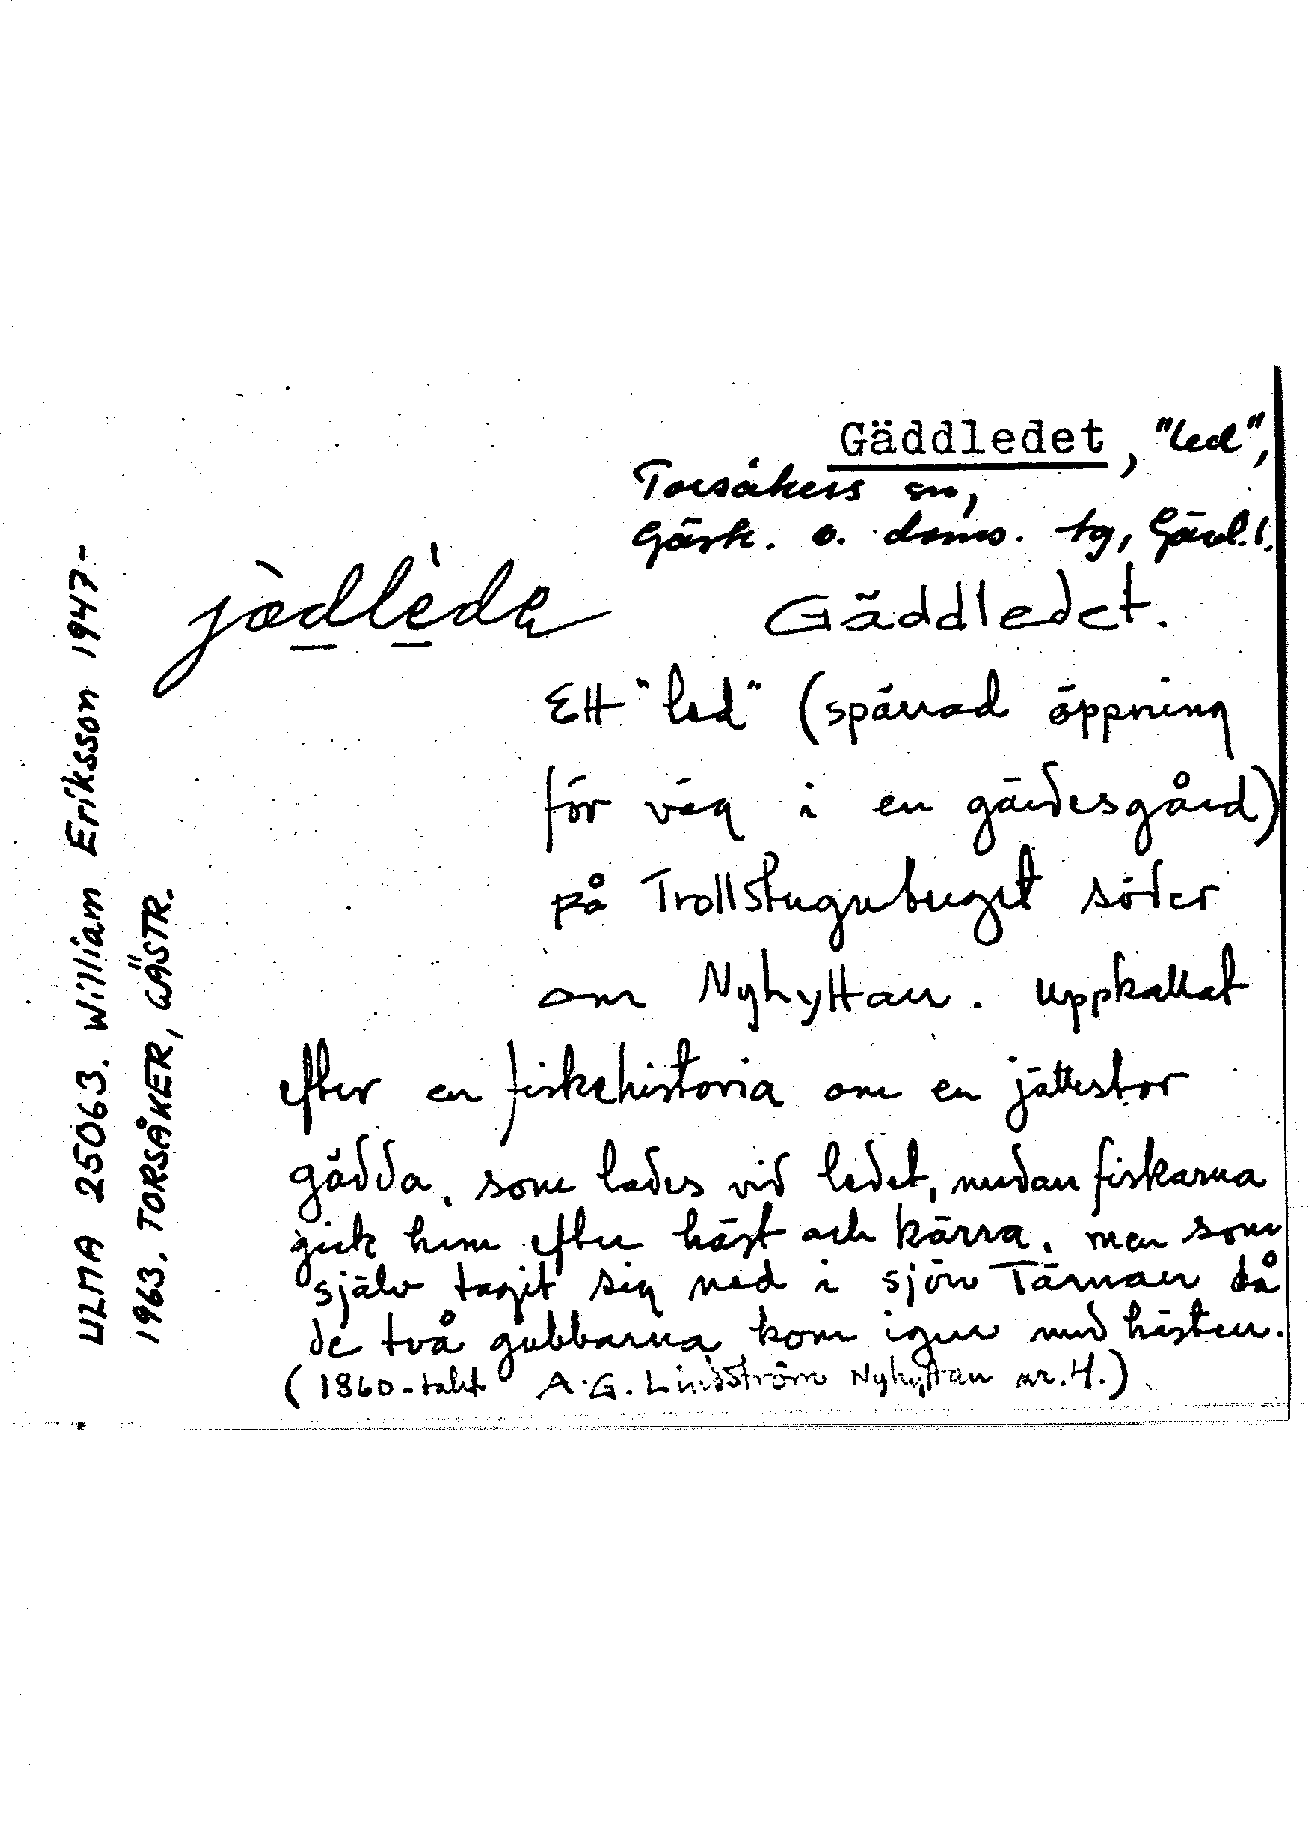 Gäddledet, "led",
Torsåkers sn,
Gästr. o. doms. tg, Gävl.l.
jædlèdₑ
Gäddledet.
Ett "led" (spärrad öppning
för väg i en gärdesgård)
på Trollstuguberget söder
om Nyhyttan. Uppkallat
efter en fiskehistoria om en jättestor
gädda, som lades vid ledet, medan fiskarna
gick hem efter häst och kärra, men som
själv tagit sig ned i sjön Tärnan då
de två gubbarna kom igen med hästen.
(1860-talet A.G. Lindström Nyhyttan nr. 4.)
ULMA 25063. William Eriksson 1947-
1963. TORSÅKER, GÄSTR.